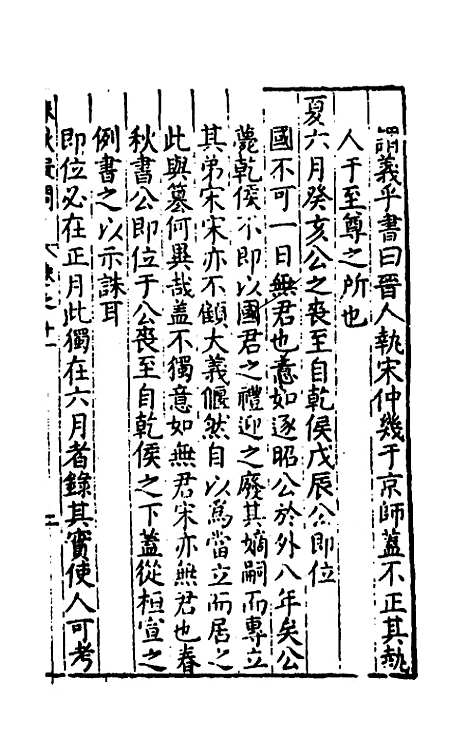 謂義乎書曰晉人執宋仲幾于京師蓋不正其執
人于至尊之所也
夏六月癸亥公之喪至自乾侯戊辰公即位
國不可一日無君也意如逐昭公於外八年矣公
薨乾侯不即以國君之禮迎之廢其嫡嗣而專立
其弟宋宋亦不顧大義偃然自以爲當立而居之
此與簒何異哉蓋不獨意如無君宋亦無君也春
秋書公即位于公喪至自乾侯之下蓋從桓宣之
例書之以示誅耳
即位必在正月此獨在六月者錄其實使人可考